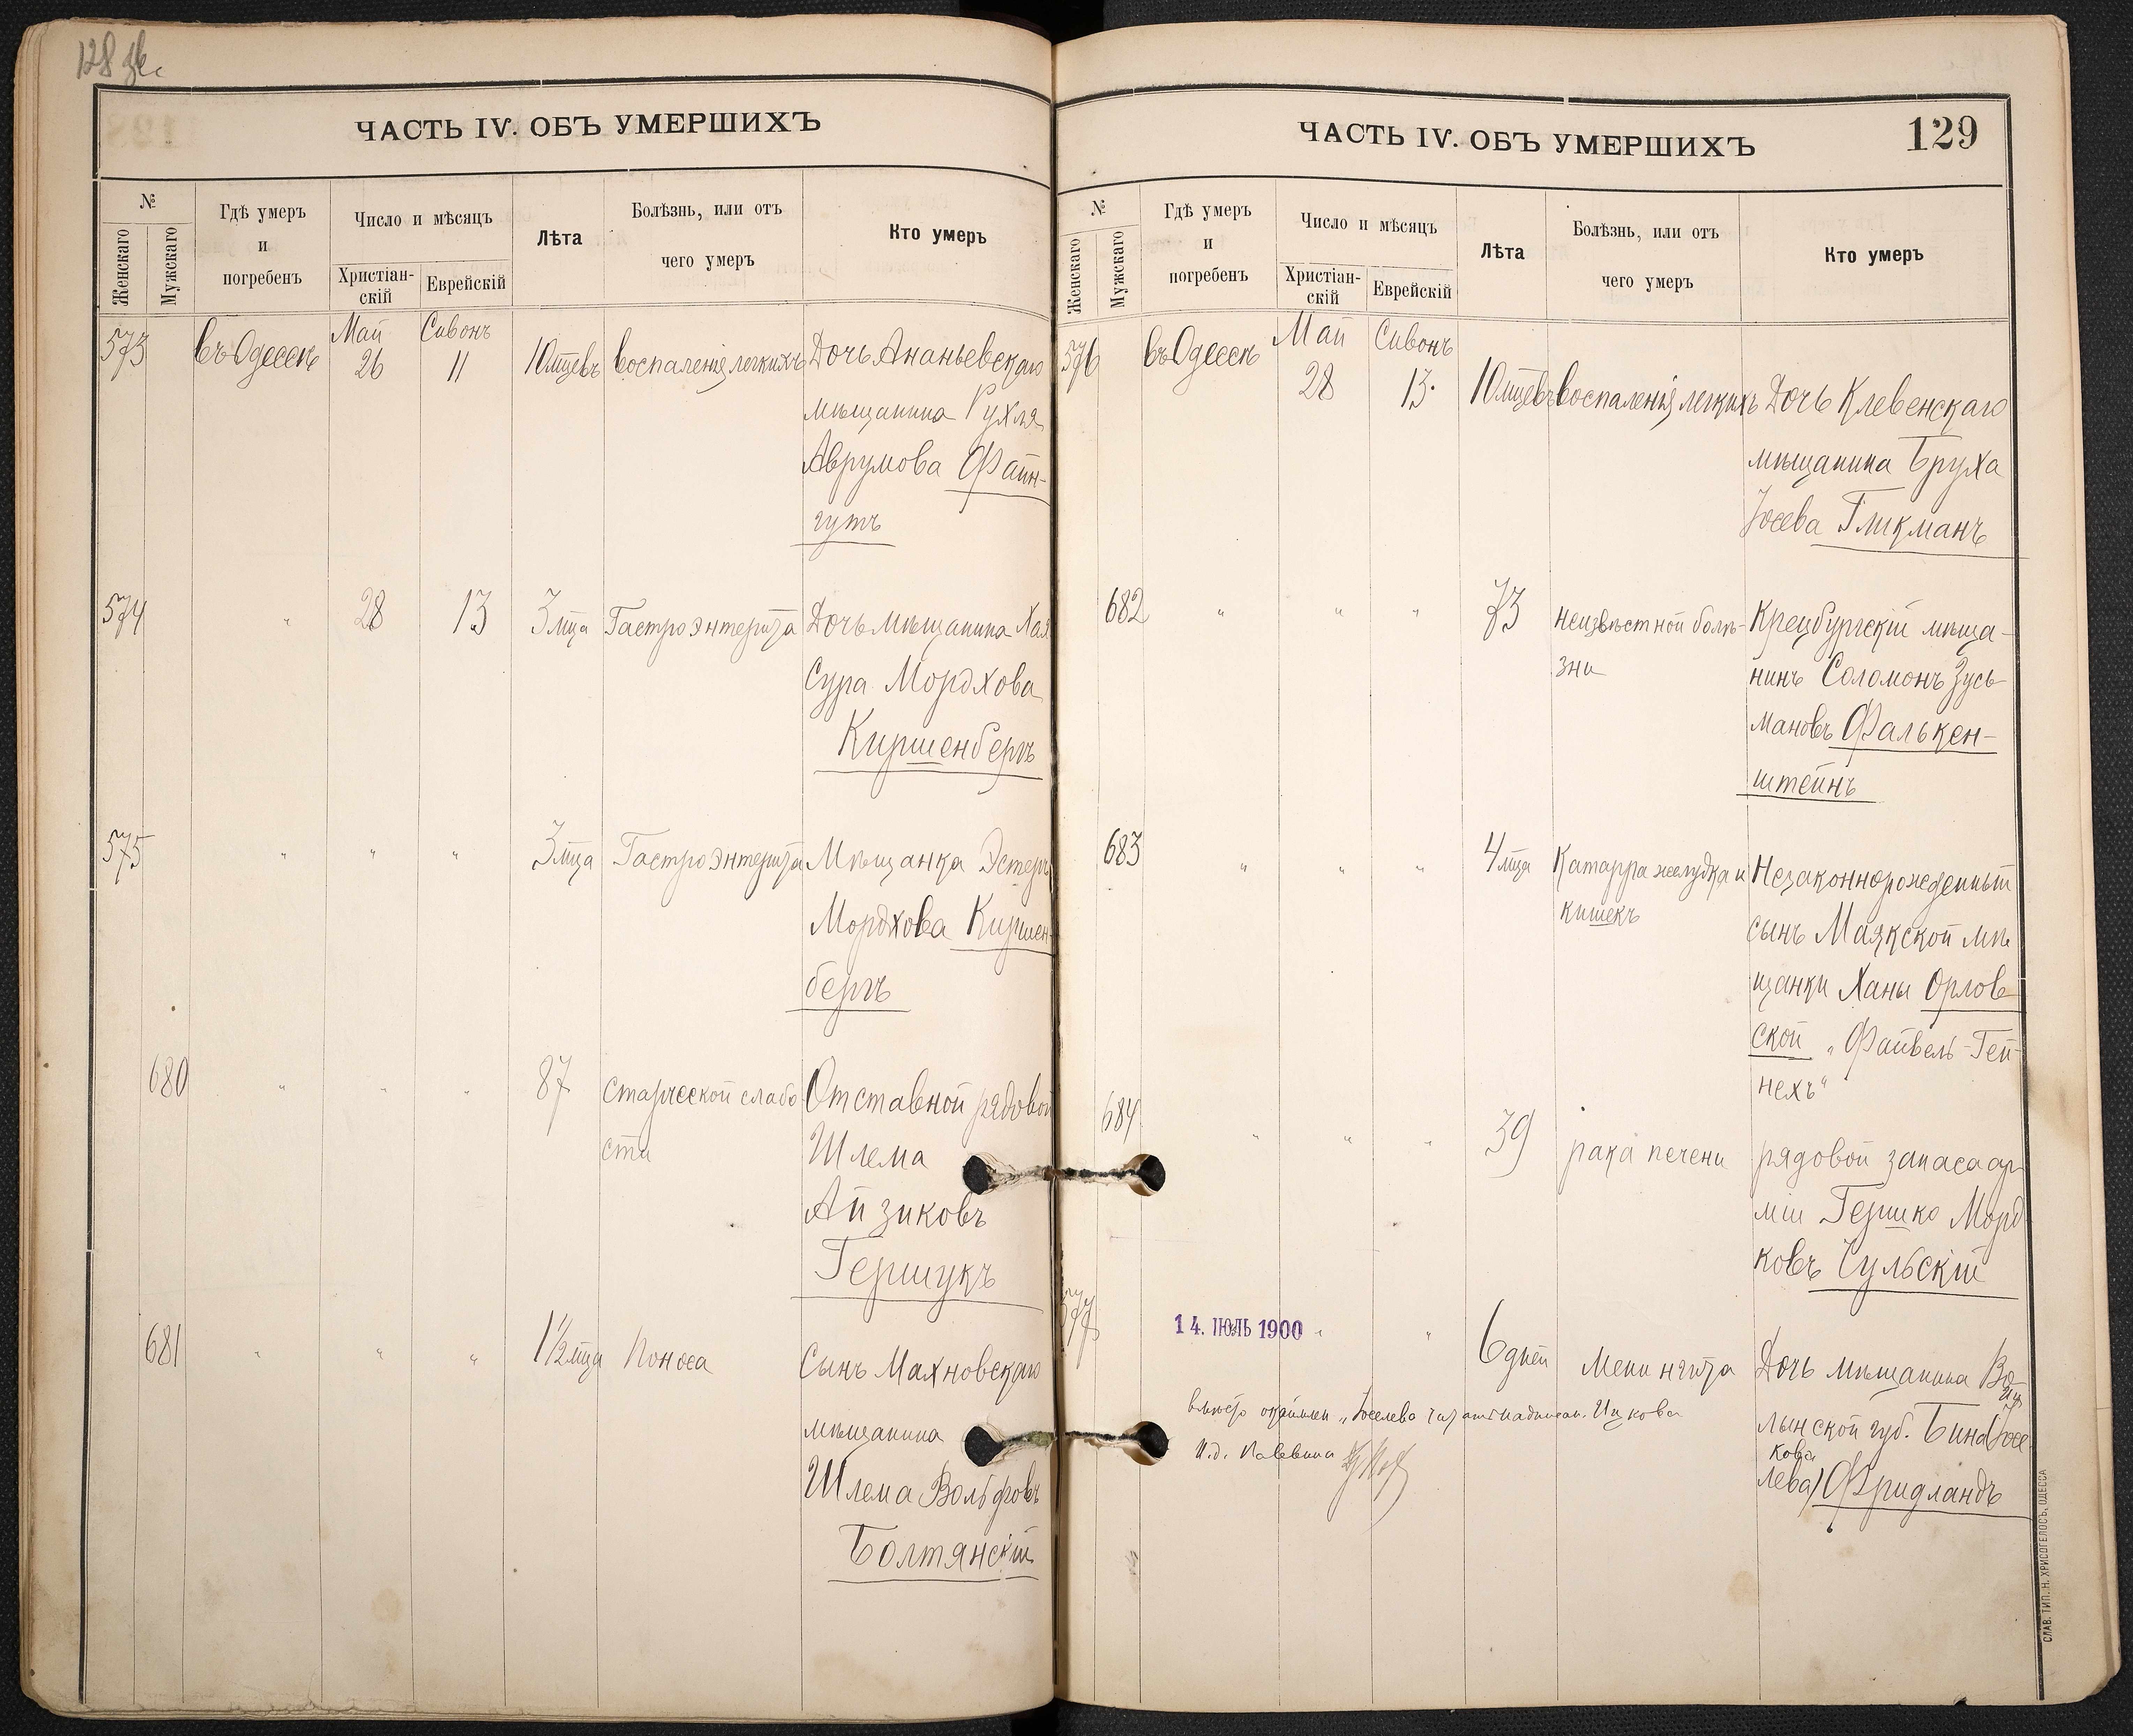 128 об.
ЧАСТЬ IV. ОБЪ УМЕРШИХЪ
№
Женскаго
Мужскаго
Гдѣ умеръ
и
погребенъ
Число и мѣсяцъ
Христіан-
скій
Еврейскій
Лѣта
Болѣзнь, или отъ
чего умеръ
Кто умеръ
Май Сивонъ
573 въ Одессѣ 26 11 10 мцевъ воспаленія легкихъ Дочь Ананьевскаго
мѣщанина Рухля
Аврумова Файн-
гутъ
574 " 28 13 3 мца Гастроэнтерита Дочь мѣщанина Хая
Сура Мордхова
Киршенбергъ
575 " " " 3 мца Гастроэнтерита Мѣщанка Эстеръ
Мордхова Киршен-
бергъ
680 " " " 87 старческой слабо Отставной рядовой
сти Шлема
Айзиковъ
Гершукъ
681 " " " 1½ мца Поноса Сынъ Махновскаго
мѣщанина
Шлема Вольфовъ
Болтянскій
ЧАСТЬ IV. ОБЪ УМЕРШИХЪ
129
№
Женскаго
Мужскаго
Гдѣ умеръ
и
погребенъ
Число и мѣсяцъ
Христіан-
скій
Еврейскій
Лѣта
Болѣзнь, или отъ
чего умеръ
Кто умеръ
Май Сивонъ
576 въ Одессѣ 28 13. 10 мцевъ воспаленія легкихъ Дочь Клевенскаго
мѣщанина Бруха
Іосева Гликманъ
682 " " " 73 неизвѣстной болѣ- Крецбургскій мѣща-
зни нинъ Соломонъ Зусь-
мановъ Фалькен-
штейнъ
683 " " " 4 мца Катарра желудка и Незаконнорожденный
кишекъ сынъ Маякской мѣ
щанки Ханы Орлов-
ской „Файвель-Гей-
нехъ“
684 " " " 39 рака печени рядовой запаса ар-
міи Гершко Морд
ковъ Сульскій
577 14. ІЮЛЬ 1900 " " 6 дней Менингита Дочь мѣщанина Во-
Иц
лынской губ. Бина (Іосе-
кова
лева) Фридландъ
вмѣсто „Іоселева надписан. Ицкова
И.д. Раввина
СЛАВ. ТИП. Н. ХРИСОГЕЛОСЪ, ОДЕССА